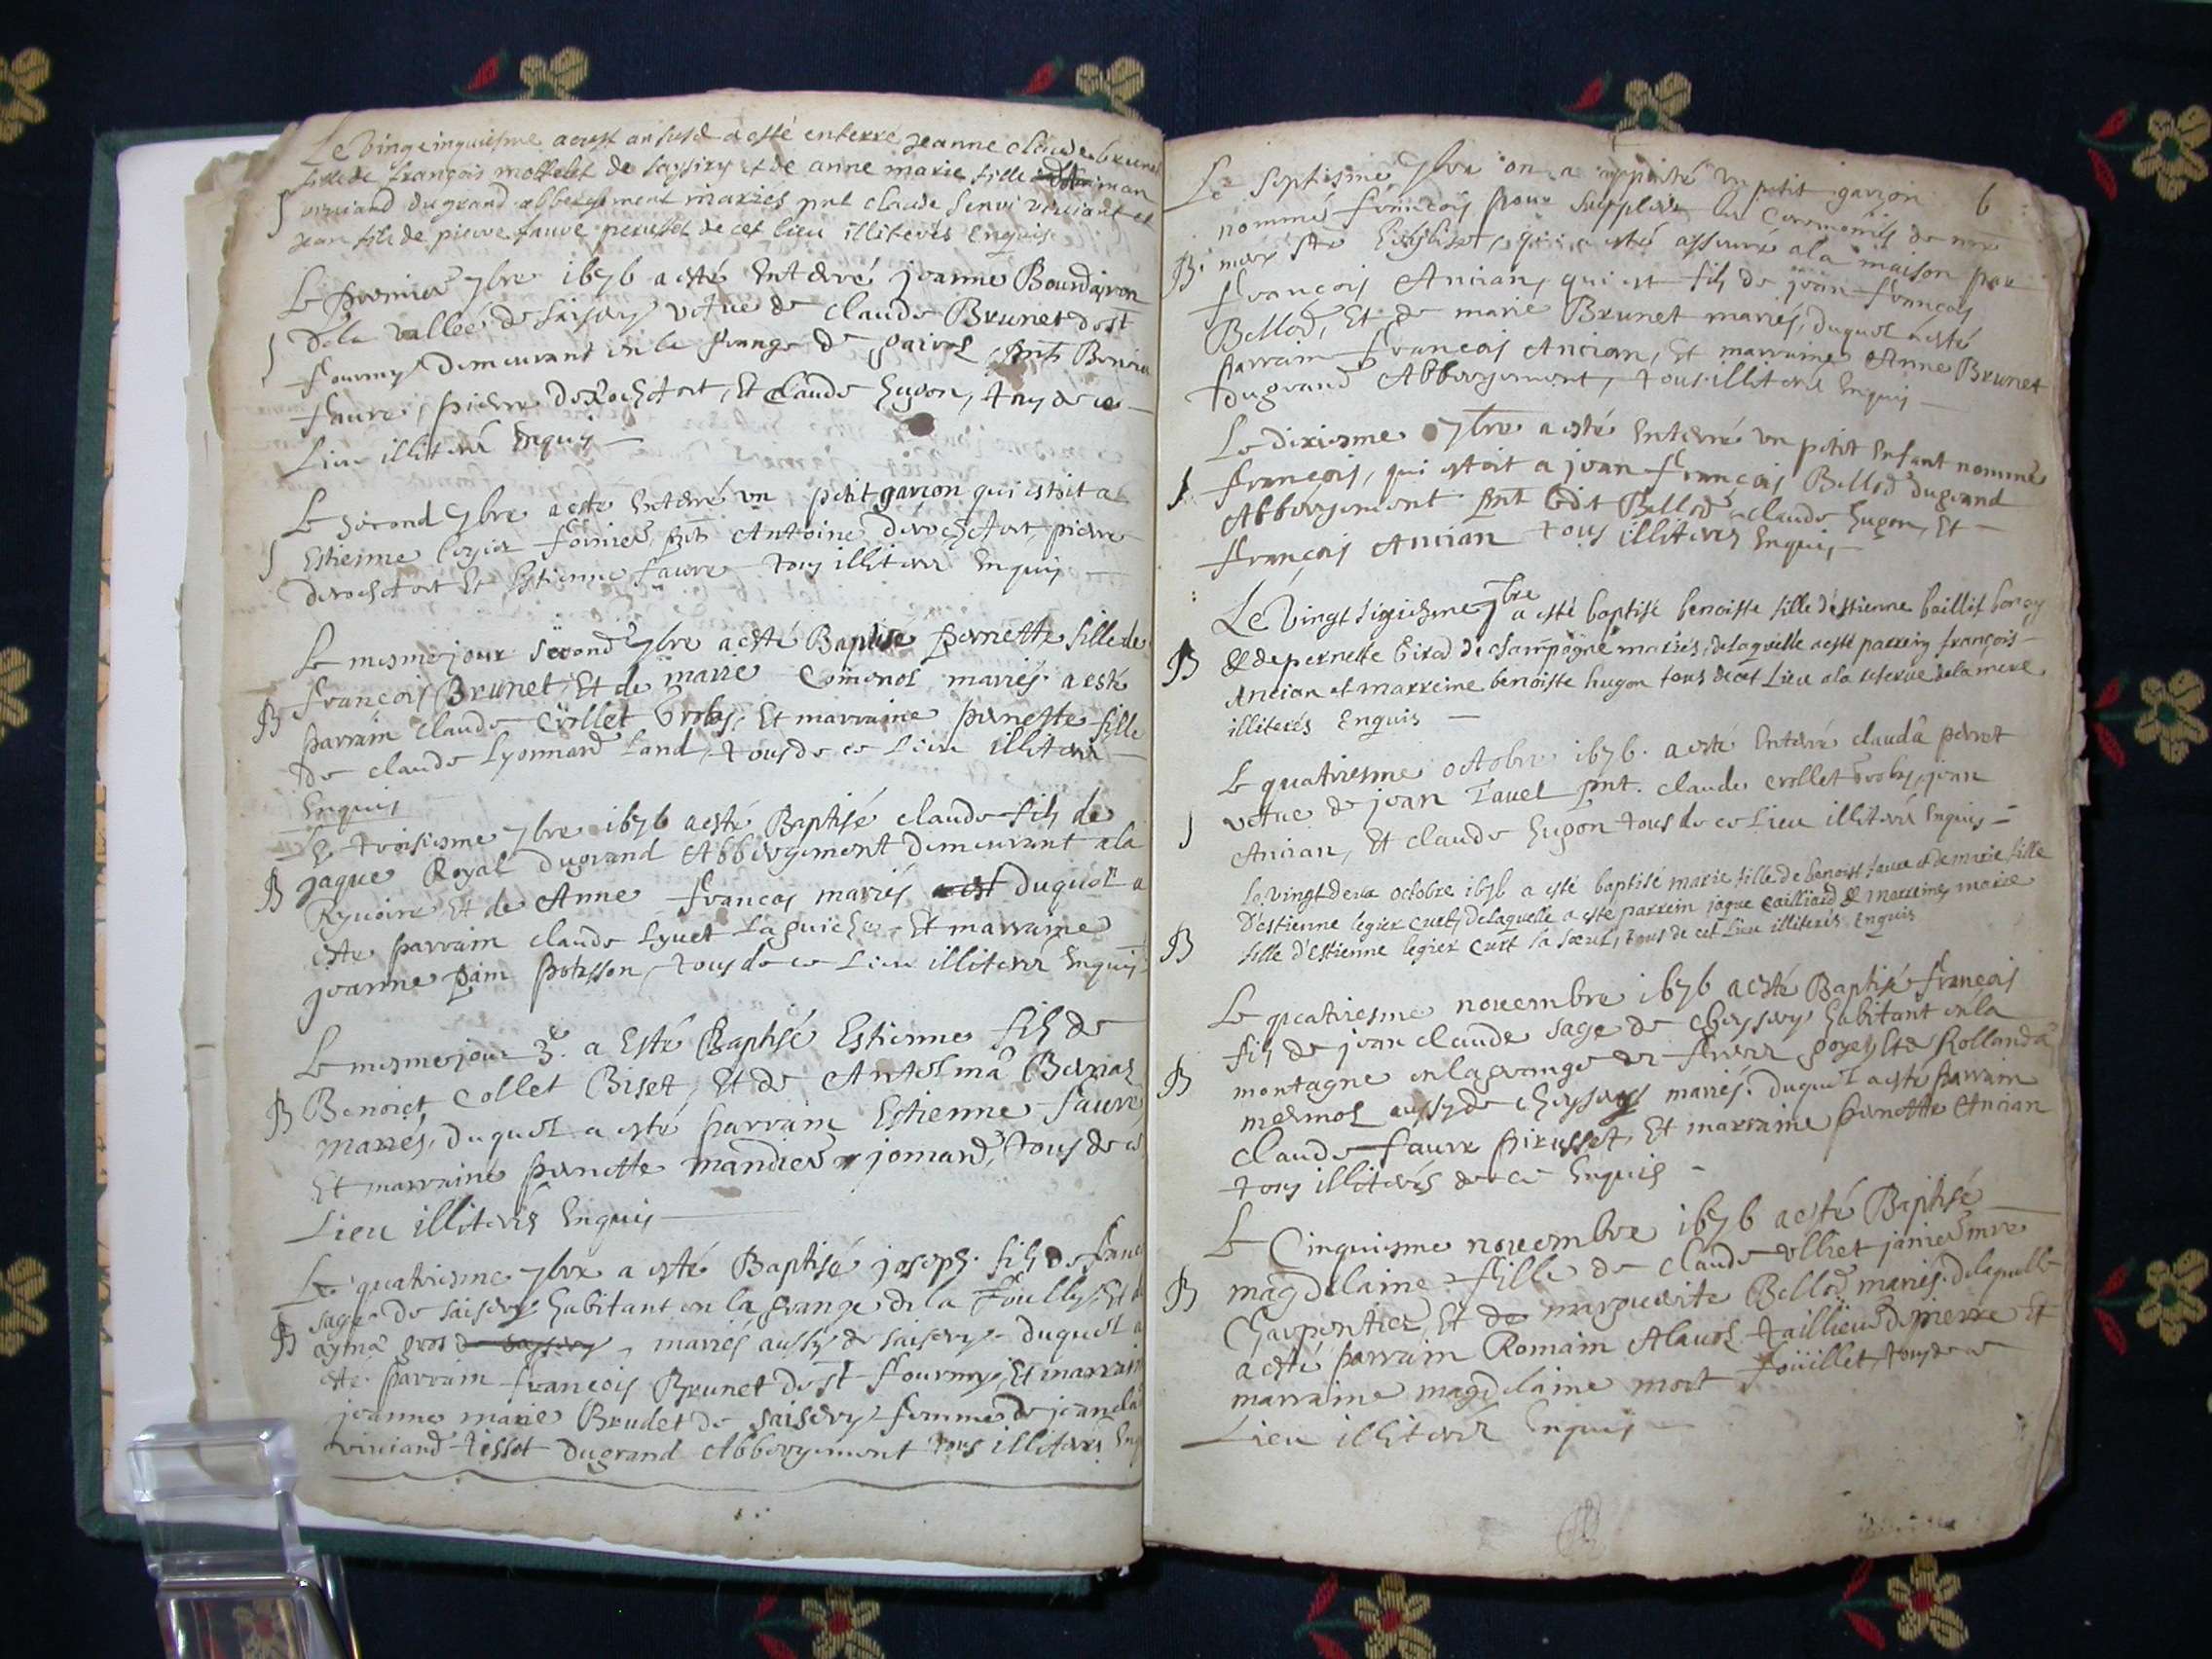 Le vingcinquiesme aoust an susd a esté enterré jeanne claude brunet
fille de françois mollelet de sayssiry et de anne marie fille
viuiand du grand abbergement mariés pnt claude viuiant et
jean fils de pierre fauvre perusset de cet lieu illiterés Enquis
Le premier 7bre 1676 a esté Enterré jeanne Bourdayron
S De la vallee de saissery vefue de claude Brunet de st
fourmy Demeurant en la grange de , pnts Benoist
faure, pierre Derochefort, Et Claude hugon, tous de ce
Lieu illiterés Enquis
Le second 7bre a esté Enterré un petit garcon qui estoit a
S Estienne legier foinier, pnts Antoine derochefort, pierre
derochefort Et Estienne faure tous illiterés Enquis
Le mesme jour second 7bre a esté Baptisé pernette fille de
B françois Brunet, Et de marie mariés a esté
parrain claude Crollet Groby, Et marraine pernette fille
de claude Lyonnard Land, tous de ce Lieu illiterés
Enquis
Le troisiesme 7bre 1676 a esté Baptisé claude fils de
B jaque Royal du grand Abbergement demeurant a la
Ryuoire Et de Anne francoy mariés a est duquel a
esté parrain claude Lyuet Laguiche Et marraine
jeanne pain potesson, tous de ce Lieu illiterés Enquis
Le mesme jour 3e. a Esté Baptisé Estienne fils de
B Benoict Collet Biset, Et de
Mariés, duquel a esté parrain Estienne faure
Et marraine pernette mandier jomard, tous de ce
Lieu illiterés Enquis
Le quatriesme 7bre a esté Baptisé joseph fils de
sage de saissery habitant en la grange de la Et
B gros de sayssery, mariés aussy de saissery duquel a
esté parrain françois Brunet de st fourmy, Et marraine
jeanne marie Brudet de saissery femme de
viuiand tissot du grand Abbergement tous illiterés Enq
6
Le Septiesme 7bre on a apporté un petit garçon
nommé françois pour suppleer les Ceremonies de nre
B mere ste Eglise, qui a esté assuré a la maison par
françois Ancian, qui est fils de jean françois
Bellod, Et de marie Brunet mariés, duquel a esté
parrain françois Ancian, Et marraine Anne Brunet
du grand Abbergement, tous illiterés Enquis
Le dixiesme 7bre a esté Enterré un petit Enfant nommé
S françois, qui estoit a jean françois Bellod du grand
Abbergement pnt ledit Bellod, claude hugon, Et
françois Ancian tous illiterés Enquis
Le vingt 7bre a esté baptisé benoiste fille d'estienne baillif
B & de pernette Girod de champagne mariés, de laquelle a esté parrein françois
Ancian et marreine benoiste hugon tous de cet Lieu a la reserue de la mere
illiterés Enquis
Le quatriesme octobre 1676. a esté Enterré clauda perret
vefue de jean Tauel pnt. claude crollet groby, jean
S Ancian, Et claude hugon tous de ce Lieu illiterés Enquis
Le vingt deux octobre 1676 a esté baptisé marie fille de benoist faure et de marie fille
D'estienne legier curt, de laquelle a esté parrein jaque cailliard & marreine marie
B fille d'Estienne legier curt sa soeur, tous de cet Lieu illiterés Enquis
Le quatriesme nouembre 1676 a esté Baptisé françois
fils de jean claude sage de cheyssery habitant en la
B montagne en la grange des freres Et de Rollanda
mermol aussy de cheyssery mariés. duquel a esté parrain
claude faure pirusset, Et marraine pernette Ancian
tous illiterés de ce Enquis
Le Cinquiesme nouembre 1676 a esté Baptisé
B magdelaine fille de claude vlliet janier mre
Charpentier Et de marguerite Bellod mariés. de laquelle
a esté parrain Romain taillieur de pierre Et
marraine magdelaine mort foüillet, tous de ce
Lieu illiterés Enquis